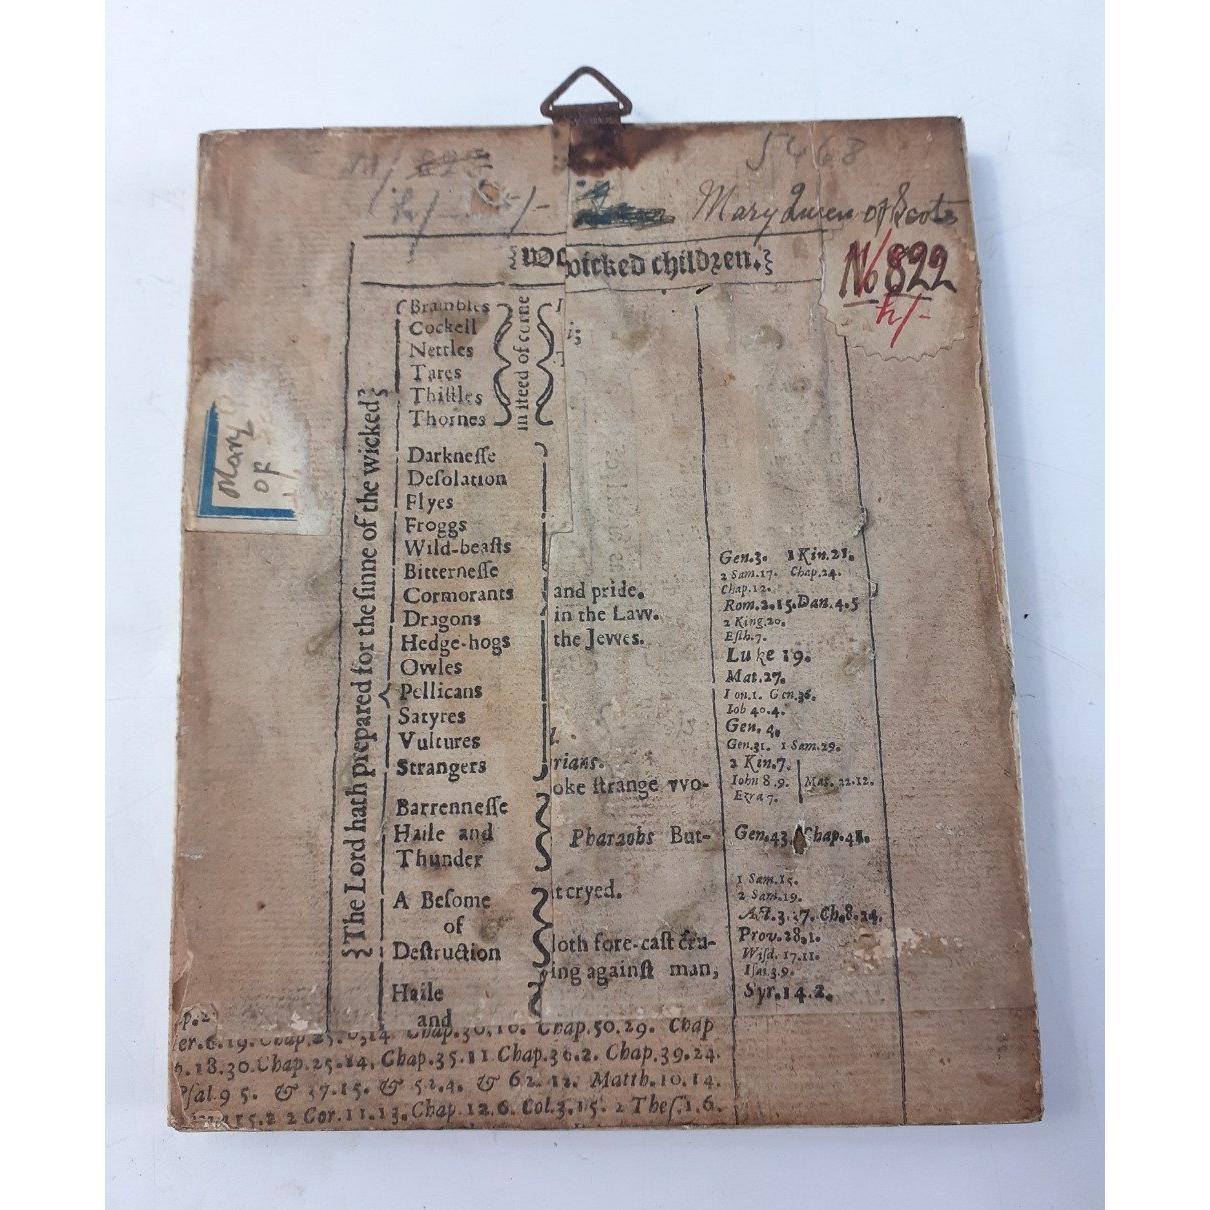 5468
Mary Queen of Scots
No 822
h/-
Mary
OF
wicked children.
The Lord hath prepared for the sinne of the wicked
Brambles
Cockell
Nettles
Tares
Thiſtles
Thornes
in ſteed of corne
Darkneſſe
Deſolation
Flyes
Froggs
Wild-beaſts
Bitterneſſe
Cormorants
Dragons
Hedge-hogs
Owles
Pellicans
Satyres
Vultures
Strangers
Barrenneſſe
Haile and
Thunder
A Beſome
of
Deſtruction
Haile
and
and pride.
in the Law.
the Jewes.
rians.
oke ſtrange vvo-
Pharaohs But-
t cryed.
loth fore-caſt cru-
ing againſt man,
Gen.3. 1 Kin.21.
2 Sam.17. Chap.24.
Chap.12.
Rom.2.15. Dan.4.5
2 King.20.
Eſth.7.
Luke 19.
Mat.27.
Ion.1. Gen.36.
Iob 40.4.
Gen. 4.
Gen.31. 1 Sam.29.
2 Kin.7.
Iohn 8.9. Mat. 22.12.
Ezra 7.
Gen.43. Chap.41.
1 Sam.15.
2 Sam.19.
Act.3.17. Ch.8.24.
Prov.28.1.
Wiſd. 17.11.
Iſai.3.9.
Syr.14.2.
p.2
er.6.19. Chap. Chap.30.16. Chap.50.29. Chap
.18.30. Chap.25.14. Chap.35.11 Chap.36.2. Chap.39.24.
Pſal.9 5. & 37.15. & 52.4. & 62.12. Matth.10.14.
5.2 2 Cor.11.13. Chap.12.6. Col.3.15. 2 Theſ.1.6.